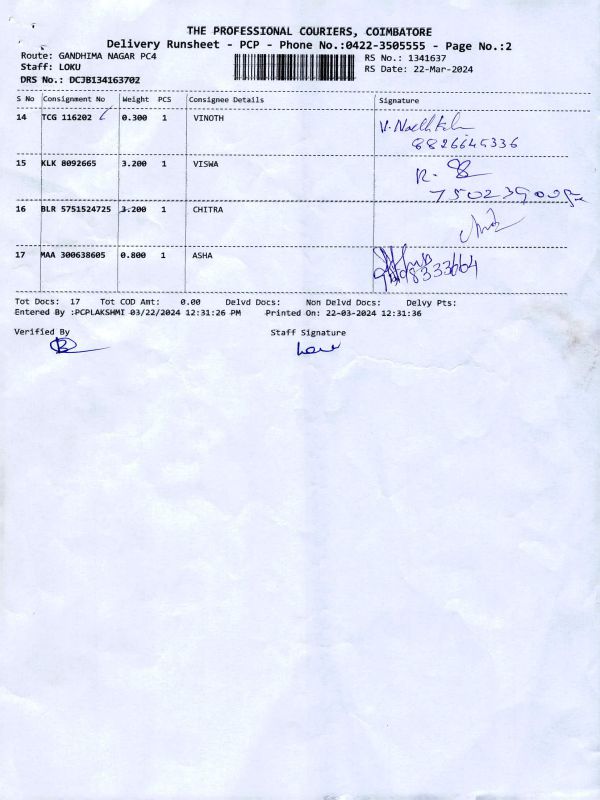 THE PROFESSIONAL COURIERS, COIMBATORE
Delivery Runsheet - PCP - Phone No.:0422-3505555 - Page No.:2
Route: GANDHIMA NAGAR PC4
RS No.: 1341637
Staff: LOKU
RS Date: 22-Mar-2024
DRS No.: DCJB134163702
S No Consignment No Weight PCS Consignee Details Signature
14 TCG 116202 0.300 1 VINOTH
8826645336
15 KLK 8092665 3.200 1 VISWA R.
16 BLR 5751524725 3.200 1 CHITRA
17 MAA 300638605 0.800 1 ASHA
Tot Docs: 17 Tot COD Amt: 0.00 Delvd Docs: Non Delvd Docs: Delvy Pts:
Entered By :PCPLAKSHMI 03/22/2024 12:31:26 PM Printed On: 22-03-2024 12:31:36
Verified By Staff Signature